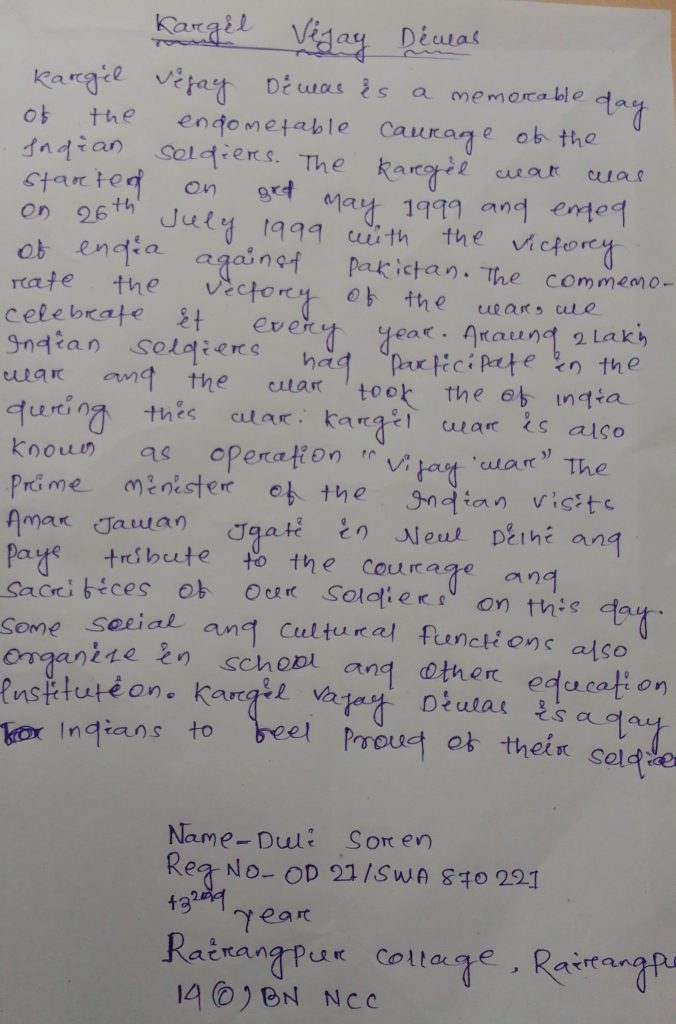 Kargil Vijay Diwas
Kargil Vijay Diwas is a memorable day
of the endometable caurage of the
Indian Soldiers. The Kargil war was
started on 3rd May 1999 and ended
on 26th July 1999 with the victory
of endia against Pakistan. The commemo-
rate the victory of the war, we
celebrate it every year. Araund 2 Lakh
Indian soldiers had participate in the
war and the war took the of india
during this war. Kargil war is also
known as operation "Vijay war" The
Prime minister of the Indian visits
Amar Jawan Jgati in New Delhi and
pays tribute to the courage and
sacrifices of our soldiers on this day.
some social and cultural functions also
organize in school and other education
Institution. Kargil Vajay Diwas is a day
Indians to feel proud of their soldie
Name-Duli Soren
Reg No- OD 21/SWA 870221
+3 2nd year
Rairangpur collage, Rairangpu
14(O) BN NCC